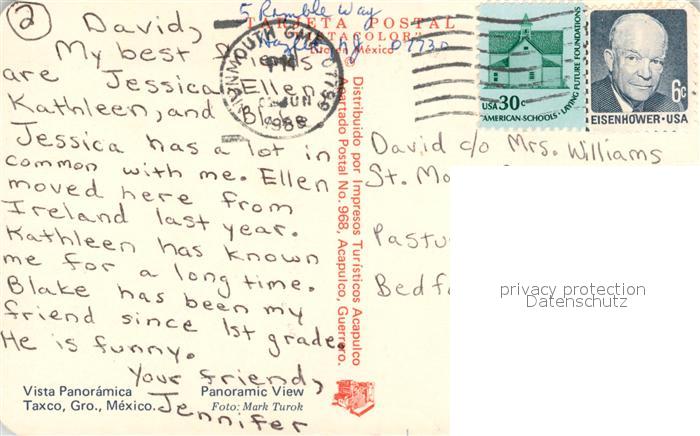 ②
David,
My best friends
are Jessica, Ellen,
Kathleen, and Blake.
Jessica has a lot in
common with me. Ellen
moved here from
Ireland last year.
Kathleen has known
me for a long time.
Blake has been my
friend since 1st grade.
He is funny.
Your friend,
Jennifer
Vista Panorámica
Taxco, Gro., México.
Panoramic View
Foto: Mark Turok
5 Ramble Way
Hazlet NJ 07730
TARJETA POSTAL
México
MONMOUTH GMF
077
PM
JUN
1988
Distribuido por Impresos Turísticos Acapulco
Apartado Postal No. 968, Acapulco, Guerrero.
USA 30c
AMERICAN-SCHOOLS · LAYING FUTURE FOUNDATIONS
6c
EISENHOWER · USA
David c/o Mrs. Williams
St. Mo
Pastu
Bedf
privacy protection
Datenschutz